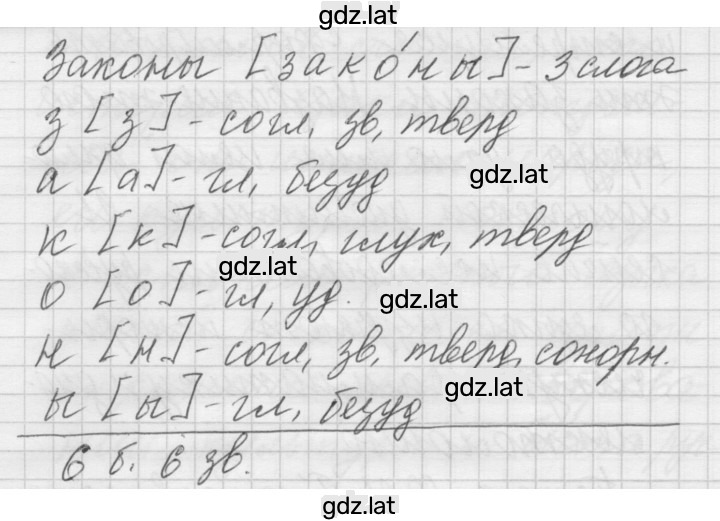 gdz.lat
Законы [зако́ны] - 3 слога
з [з] - согл, зв, тверд
а [а] - гл, безуд
gdz.lat
к [к] - согл, глух, тверд
gdz.lat
о [о] - гл, уд.
gdz.lat
н [н] - согл, зв, тверд, сонорн.
gdz.lat
ы [ы] - гл, безуд
6 б. 6 зв.
gdz.lat